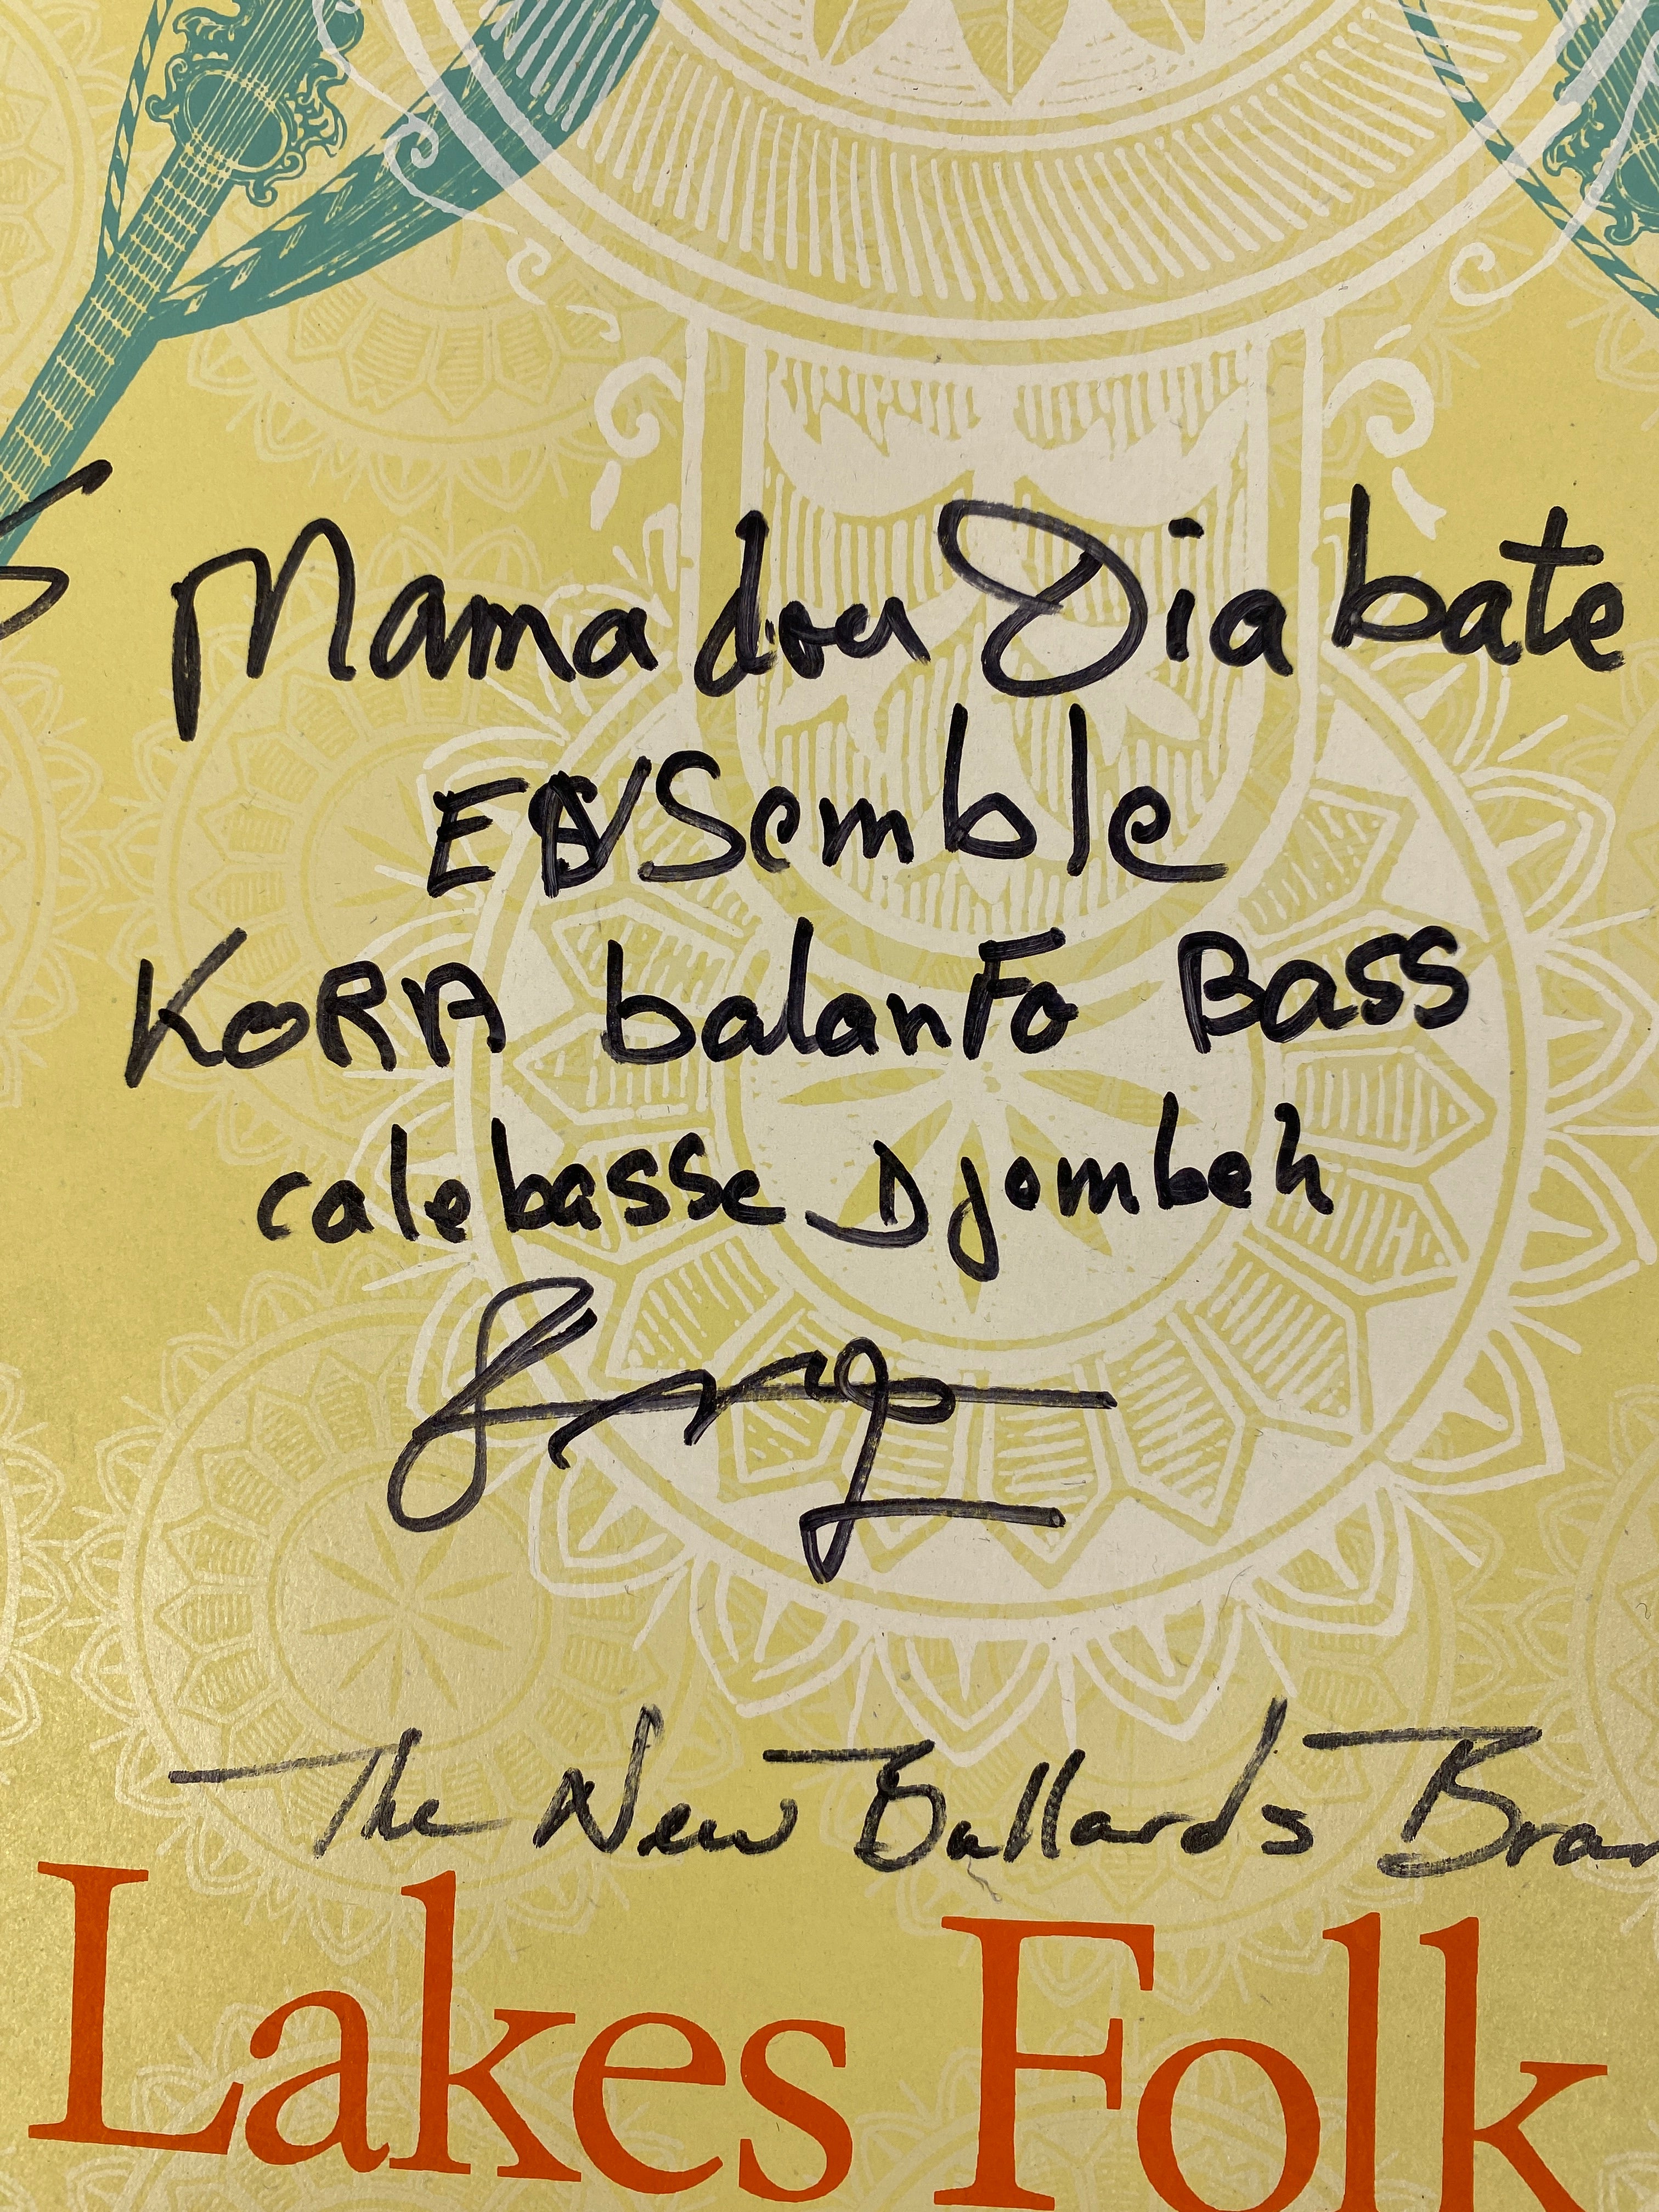 Mamadou Diabate
ENSemble
KORA balanFo Bass
calebasse Djembeh
The New Ballards Bran
Lakes Folk